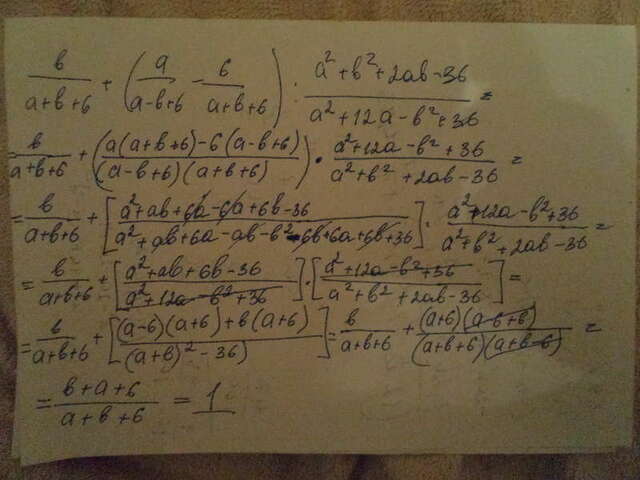 b/(a+b+6) + (a/(a-b+6) - 6/(a+b+6)) : (a²+b²+2ab-36)/(a²+12a-b²+36) =
= b/(a+b+6) + ((a(a+b+6)-6(a-b+6))/((a-b+6)(a+b+6))) · (a²+12a-b²+36)/(a²+b²+2ab-36) =
= b/(a+b+6) + [(a²+ab+6a-6a+6b-36)/(a²+ab+6a-ab-b²-6b+6a+6b+36)] · (a²+12a-b²+36)/(a²+b²+2ab-36) =
= b/(a+b+6) + [(a²+ab+6b-36)/(a²+12a-b²+36)] · [(a²+12a-b²+36)/(a²+b²+2ab-36)] =
= b/(a+b+6) + [((a-6)(a+6)+b(a+6))/((a+b)²-36)] = b/(a+b+6) + ((a+6)(a-6+b))/((a+b+6)(a+b-6)) =
= (b+a+6)/(a+b+6) = 1